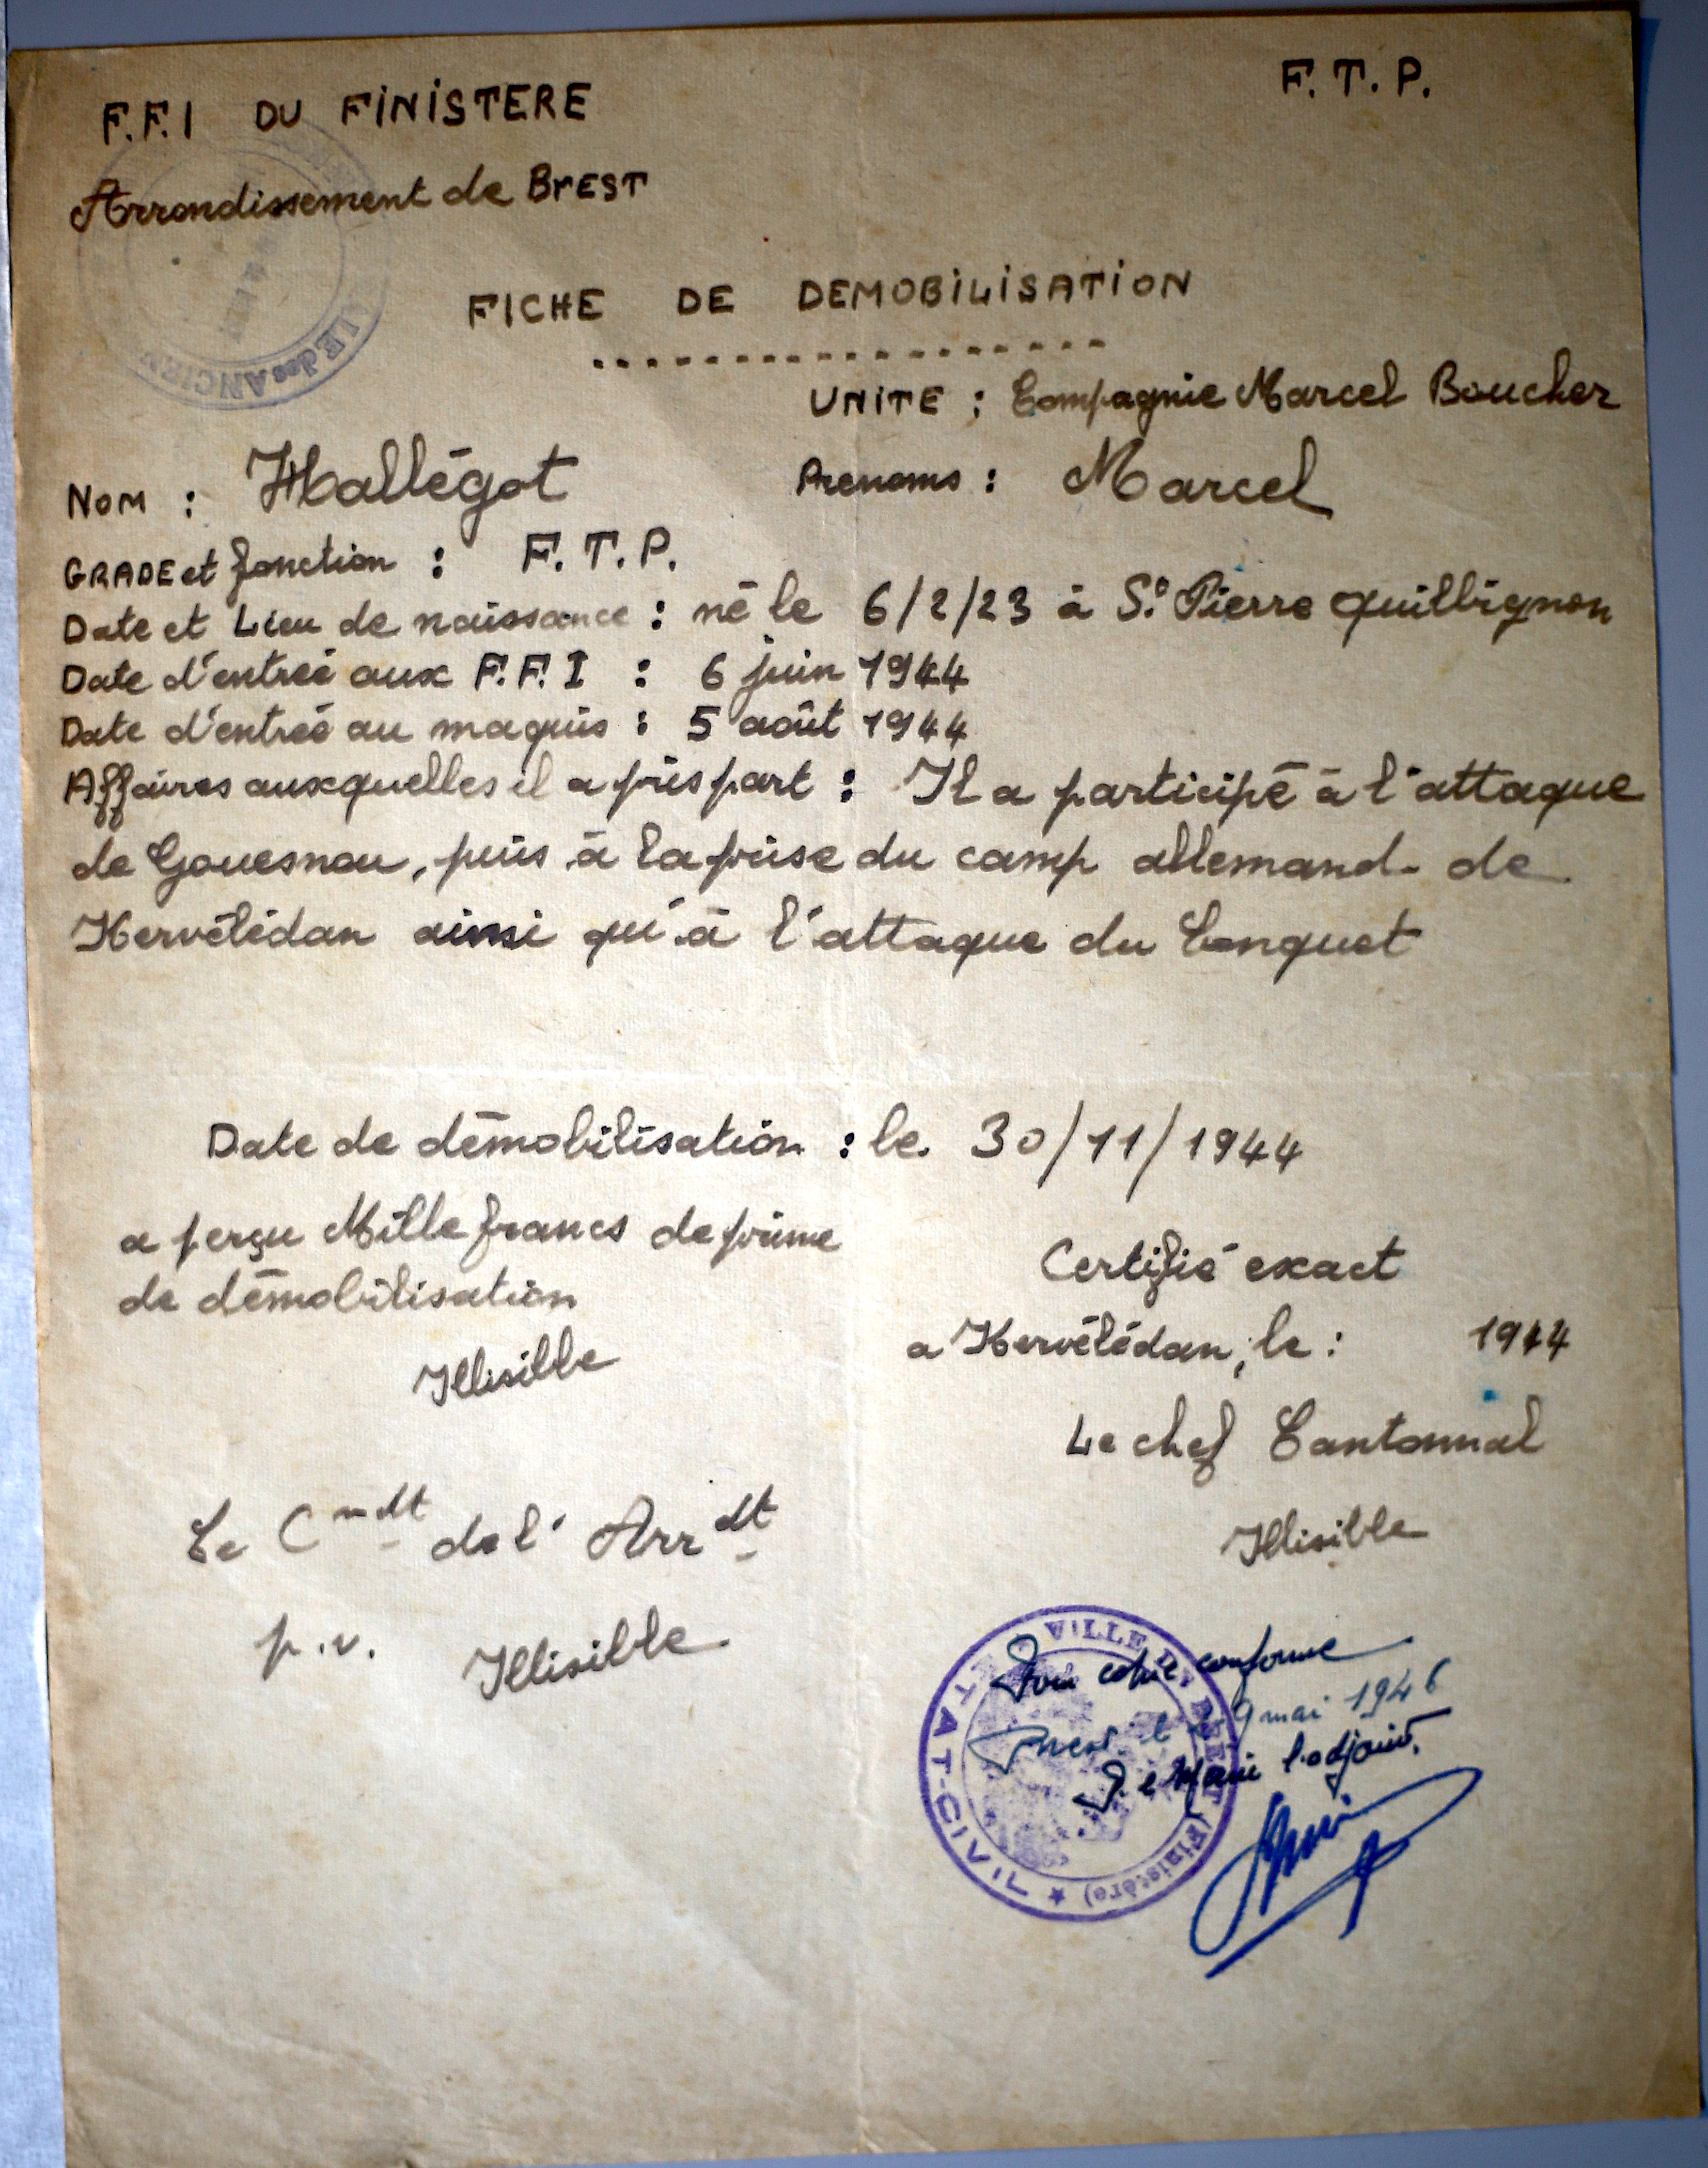 F.F.I DU FINISTERE
F. T. P.
Arrondissement de BrEST
FICHE DE DEMOBILISATION
UNITE : Compagnie Marcel Boucher
NOM : Hallégot Prenoms : Marcel
GRADE et fonction : F. T. P.
Date et Lieu de naissance : né le 6/2/23 à St Pierre Quilbignon
Date d'entrée aux F. F. I : 6 juin 1944
Date d'entrée au maquis : 5 août 1944
Affaires auxquelles il a pris part : Il a participé à l'attaque
de Gouesnou, puis à la prise du camp allemand de
Kervélédan ainsi qu'à l'attaque du Conquet
Date de démobilisation : le 30/11/1944
a perçu Mille francs de prime
de démobilisation
Illisible
Certifié exact
a Kervélédan, le : 1944
Le chef Cantonnal
Illisible
Le Cmdt de l' Arrdt
p.v. Illisible
VILLE DE BREST (Finistère) ★ ETAT-CIVIL
Pour copie conforme
Brest le 9 mai 1946
P. le Maire l'adjoint,
LE des ANCIEN